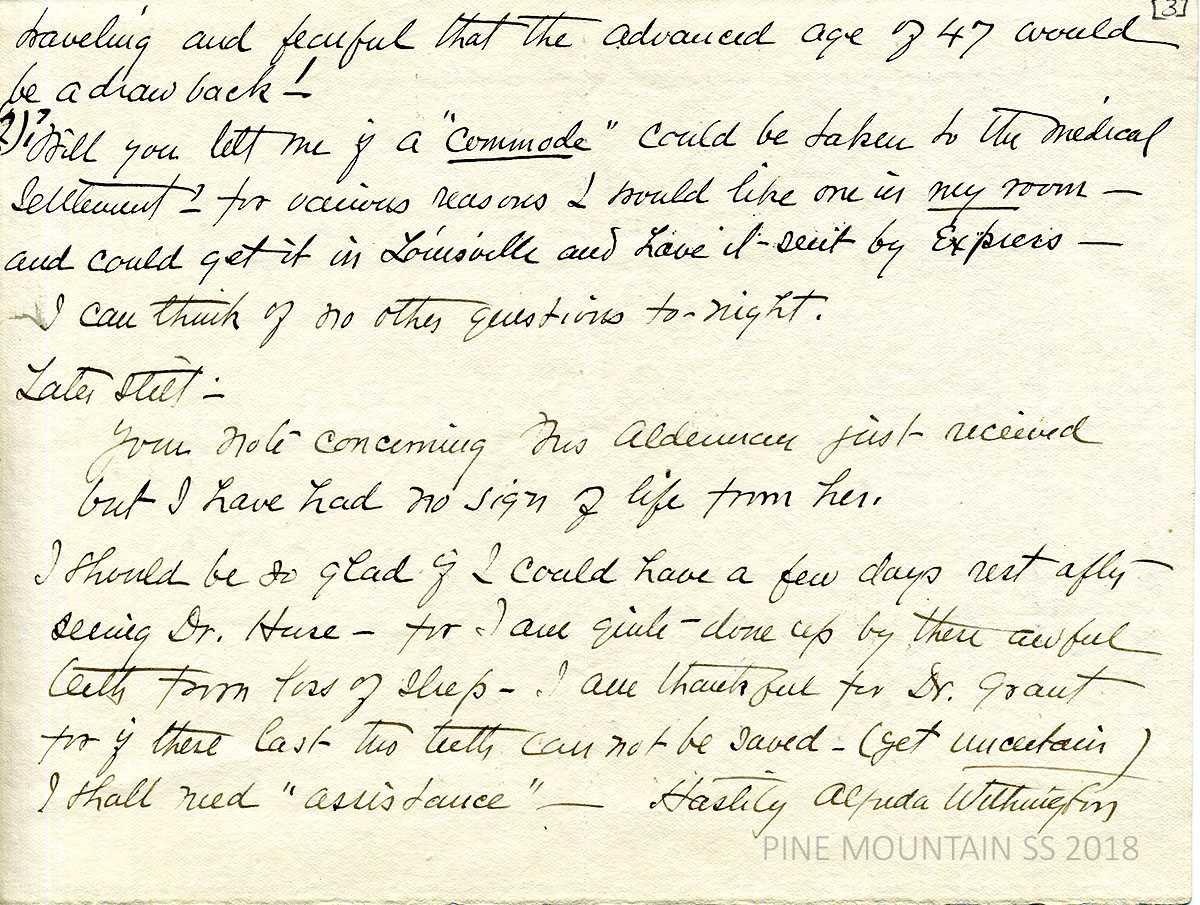 [3]
traveling and fearful that the advanced age of 47 would
be a draw back! –
2) Will you lett me if a "commode" could be taken to the Medical
Settlement? – for various reasons I would like one in my room –
and could get it in Louisville and have it sent by Express –
I can think of no other questions to-night.
Later still –
Your note concerning Miss Alderman just received
but I have had no sign of life from her.
I should be so glad if I could have a few days rest after
seeing Dr. Huse – for I am quite done up by these awful
teeth from loss of sleep – I am thankful for Dr. Grant
for if these last two teeth can not be saved – (yet uncertain)
I shall need "assistance" — Hastily Alfreda Withington
PINE MOUNTAIN SS 2018